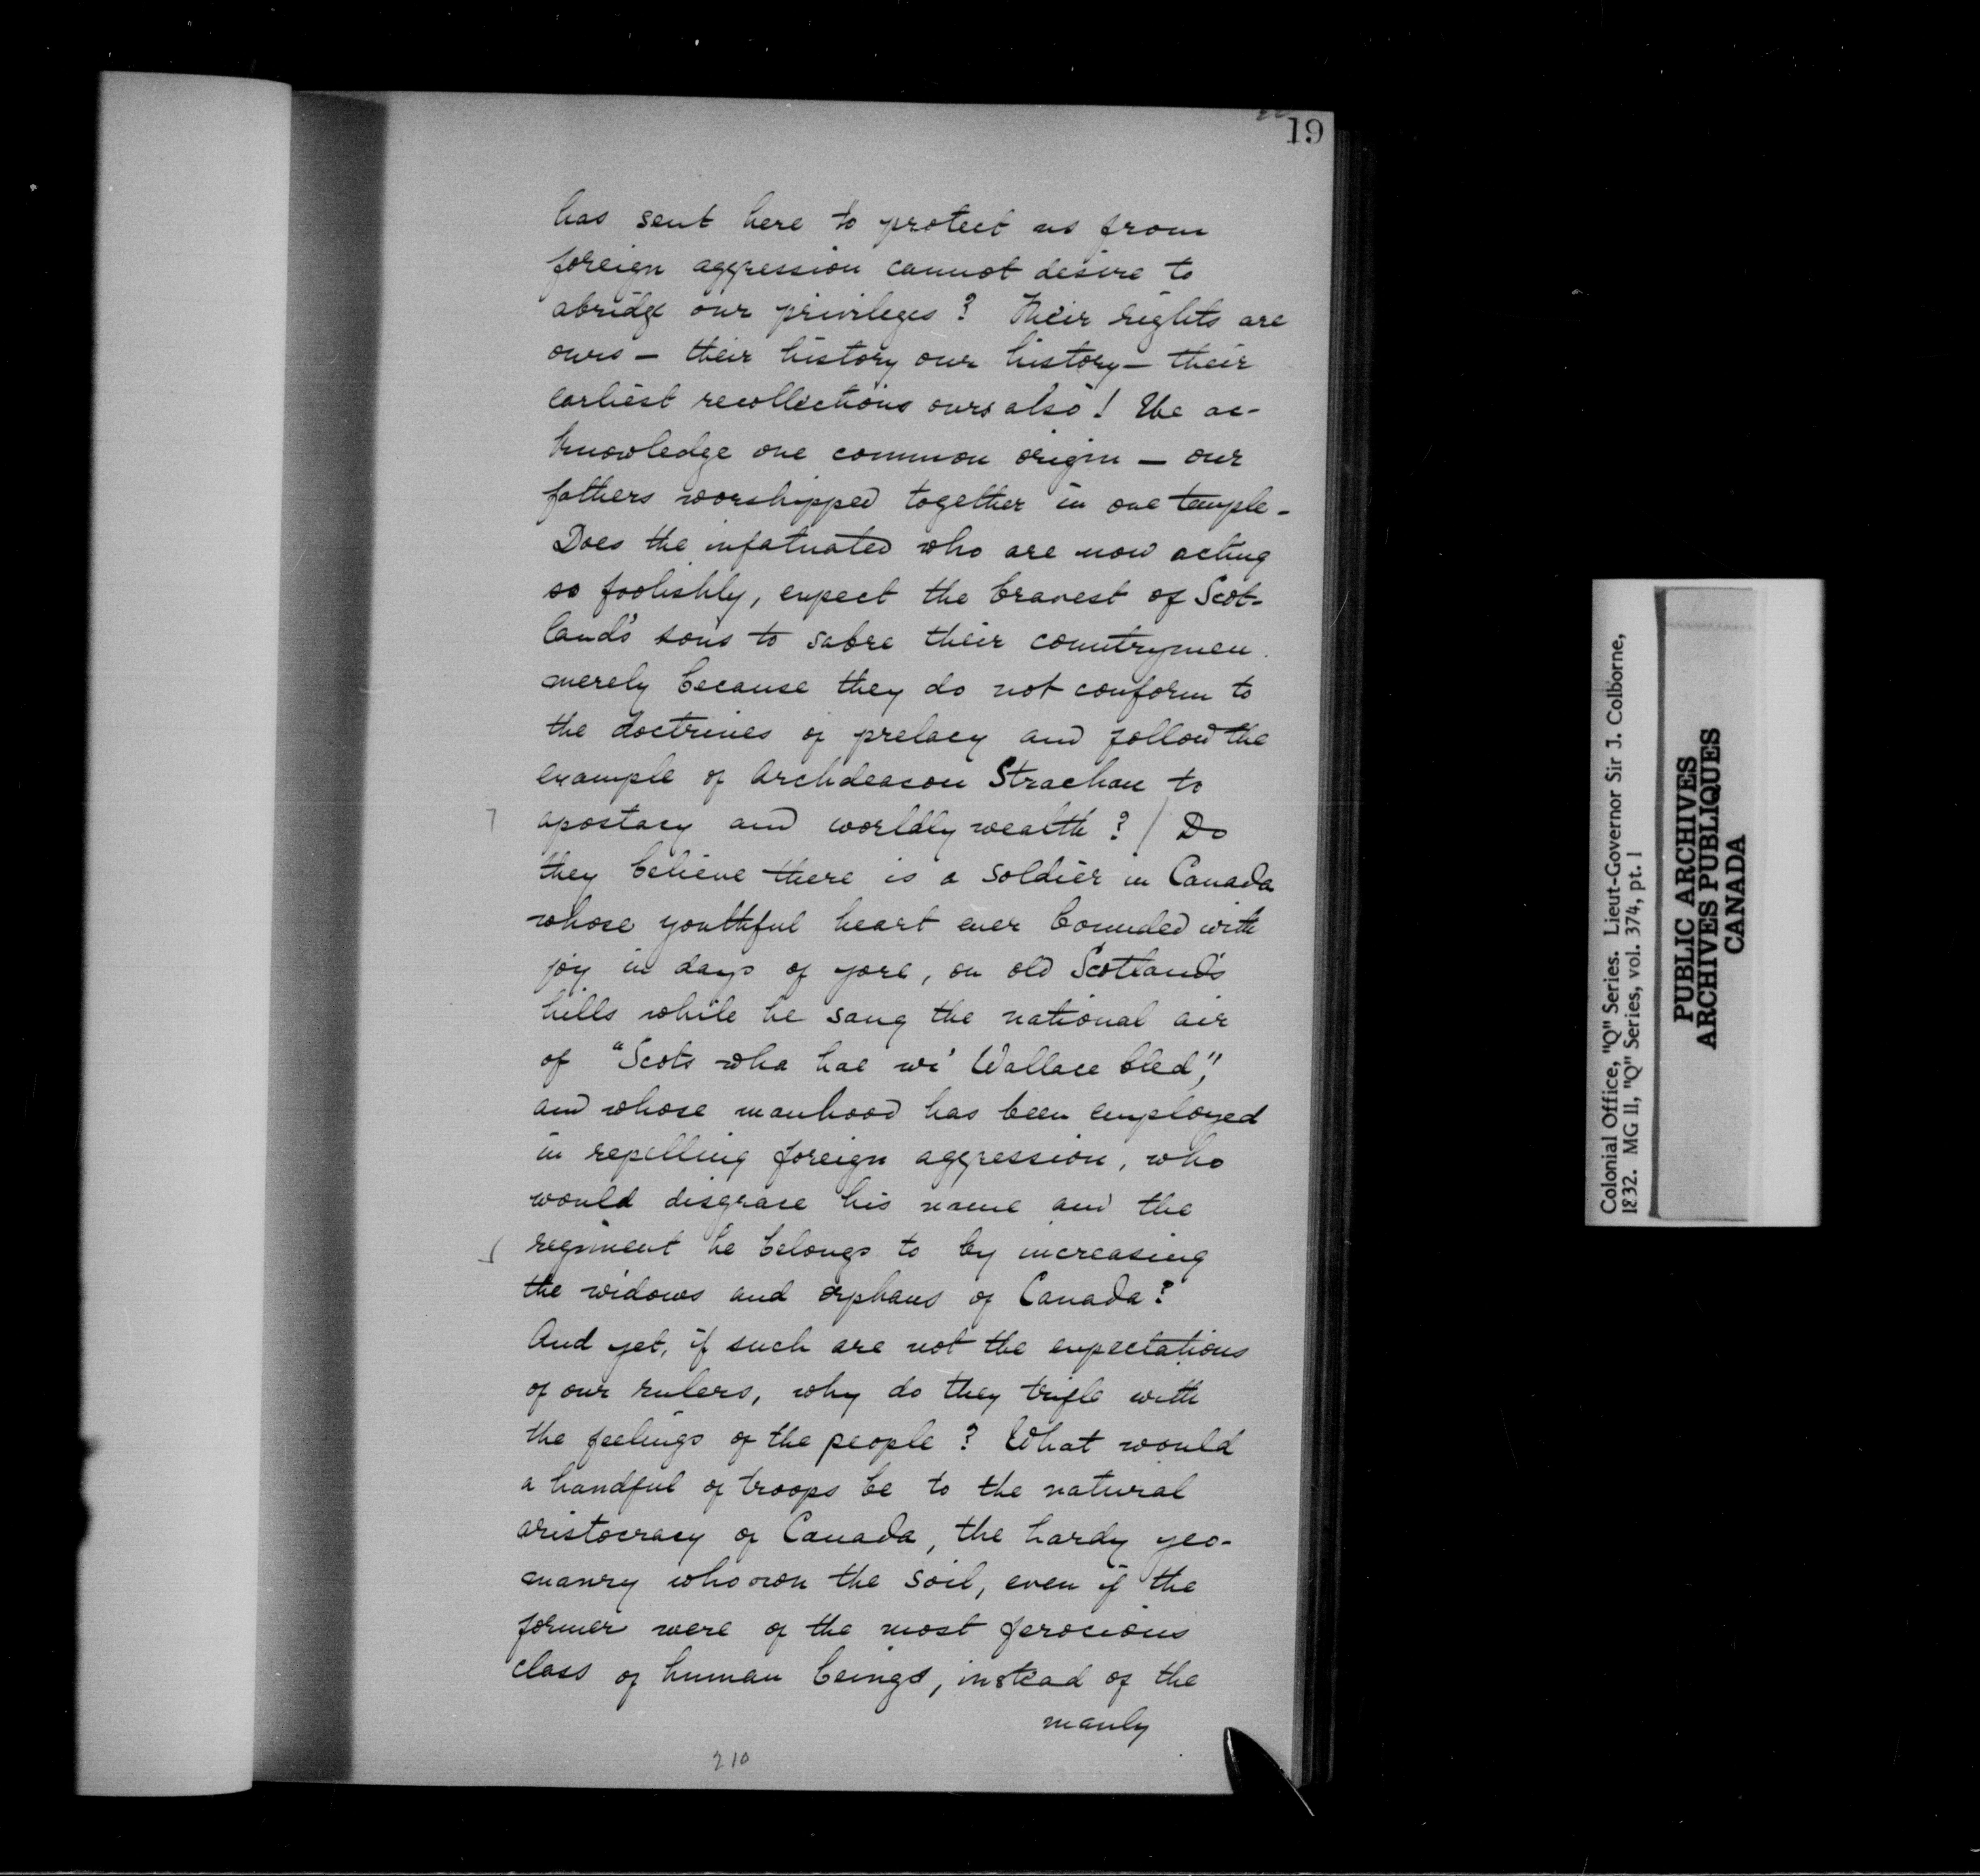 19
has sent here to protect us from
foreign aggression cannot desire to
abridge our privileges? Their rights are
ours - their history our history - their
earliest recollections ours also! We ac-
knowledge one common origin - our
fathers worshipped together in one temple -
Does the infatuated who are now acting
so foolishly, expect the bravest of Scot-
land's sons to sabre their countrymen
merely because they do not conform to
the doctrines of prelacy and follow the
example of Archdeacon Strachan to
apostacy and worldly wealth? / Do
they believe there is a soldier in Canada
whose youthful heart ever bounded with
joy in days of yore, on old Scotland's
hills while he sang the national air
of "Scots wha hae wi' Wallace bled",
and whose manhood has been employed
in repelling foreign aggression, who
would disgrace his name and the
regiment he belongs to by increasing
the widows and orphans of Canada?
And yet, if such are not the expectations
of our rulers, why do they trifle with
the feelings of the people? What would
a handful of troops be to the natural
aristocracy of Canada, the hardy yeo-
manry who own the soil, even if the
former were of the most ferocious
class of human beings, instead of the
manly
210
Colonial Office, "Q" Series. Lieut-Governor Sir J. Colborne,
1832. MG 11, "Q" Series, vol. 374, pt. 1
PUBLIC ARCHIVES
ARCHIVES PUBLIQUES
CANADA